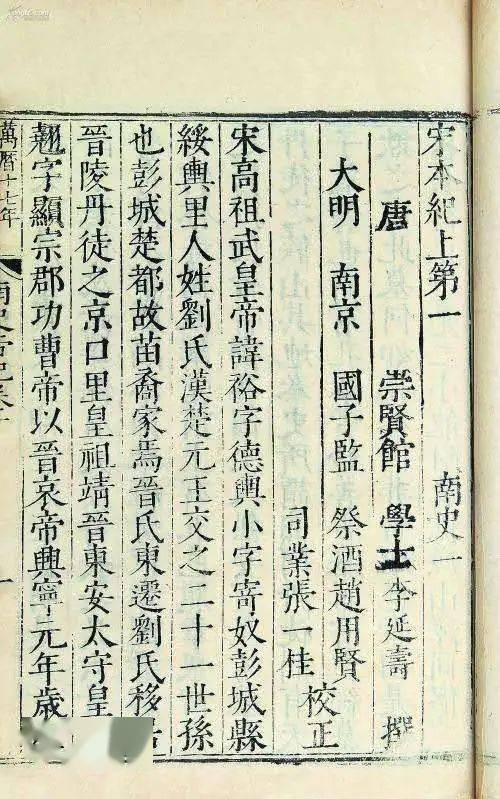 宋本紀上第一 南史一
唐 崇賢館 學士李延壽 撰
大明 南京 國子監 祭酒趙用賢
司業張一桂 校正
宋高祖武皇帝諱裕字德輿小字寄奴彭城縣
綏輿里人姓劉氏漢楚元王交之二十一世孫
也彭城楚都故苗裔家焉晉氏東遷劉氏移居
晉陵丹徒之京口里皇祖靖晉東安太守皇
翹字顯宗郡功曹帝以晉哀帝興寧元年歲
萬曆十七年 南史本紀卷一 一